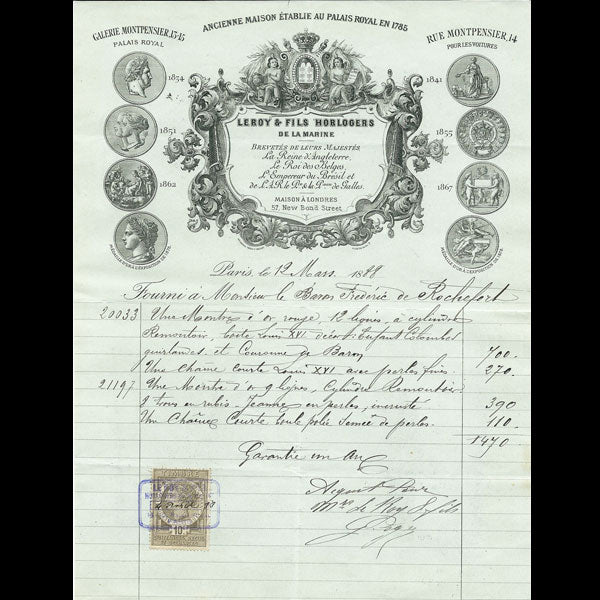 ANCIENNE MAISON ÉTABLIE AU PALAIS ROYAL EN 1785
GALERIE MONTPENSIER, 13-15
PALAIS ROYAL
RUE MONTPENSIER, 14
POUR LES VOITURES
1834
1841
1851
1855
1862
1867
MÉDAILLE D'OR À L'EXPOSITION DE 1878
MÉDAILLE D'OR À L'EXPOSITION DE 1878
LEROY & FILS HORLOGERS
DE LA MARINE
BREVETÉS DE LEURS MAJESTÉS
La Reine d'Angleterre,
Le Roi des Belges,
L'Empereur du Brésil et
de L.A.R. le Pce & la Psse de Galles.
MAISON À LONDRES
57, New Bond Street
Paris, le 12 Mars 1888
Fourni à Monsieur le Baron Frédéric de Rochefort
20033 Une Montre d'or rouge, 12 lignes, à cylindre
Remontoir, boite Louis XVI décor: Enfant Colombes
guirlandes et Couronne de Baron 700.
Une Chaine Courte Louis XVI avec perles fines. 270.
21197 Une Montre d'or 9 lignes, Cylindre Remontoir.
4 trous en rubis, Jeanne en perles, incrusté 390
Une Chaîne Courte boule polie Semée de perles. 110.
1470.
Garantie un An
Acquit Pour
Mrs Le Roy & fils
10c